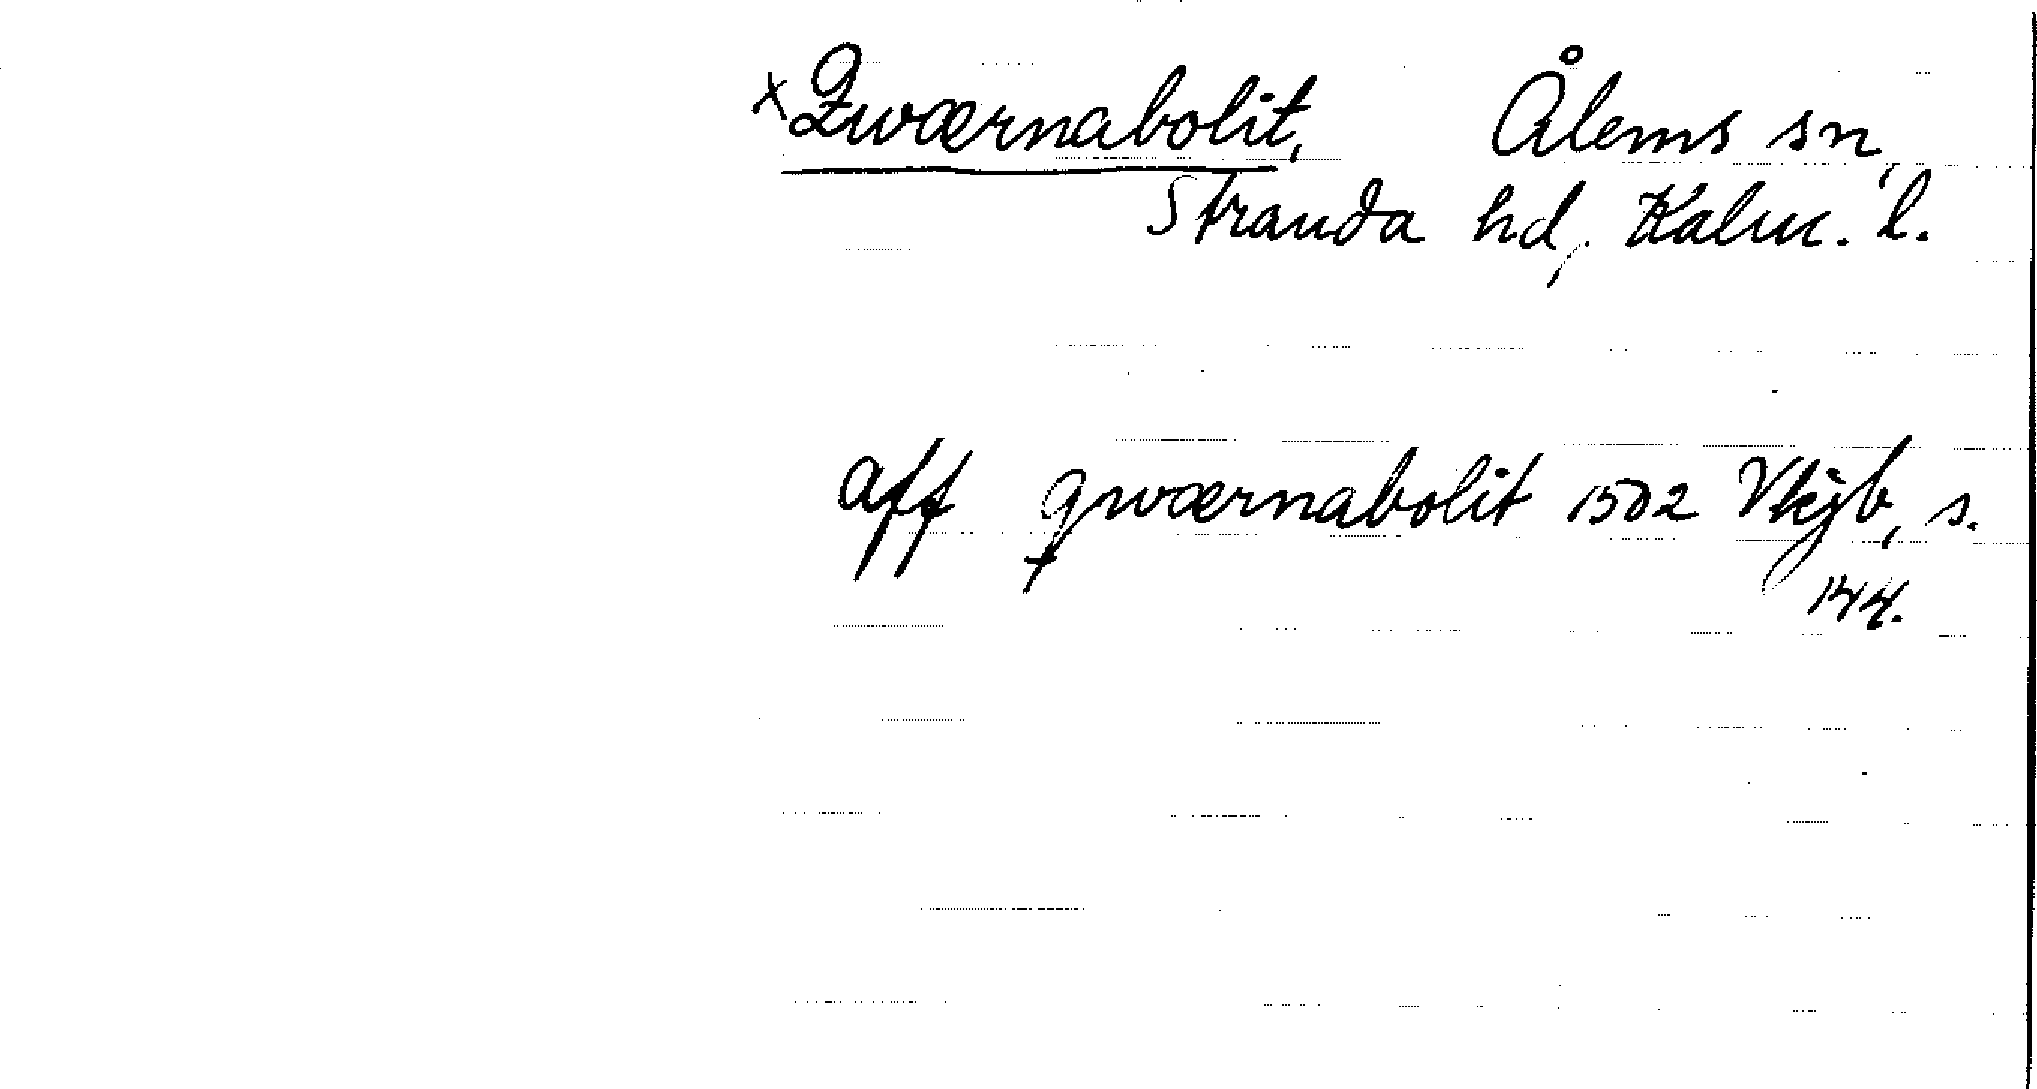 x Qwærnabolit, Ålems sn,
Stranda hd, Kalm. l.
aff qwærnabolit 1502 Vkjb, s.
144.